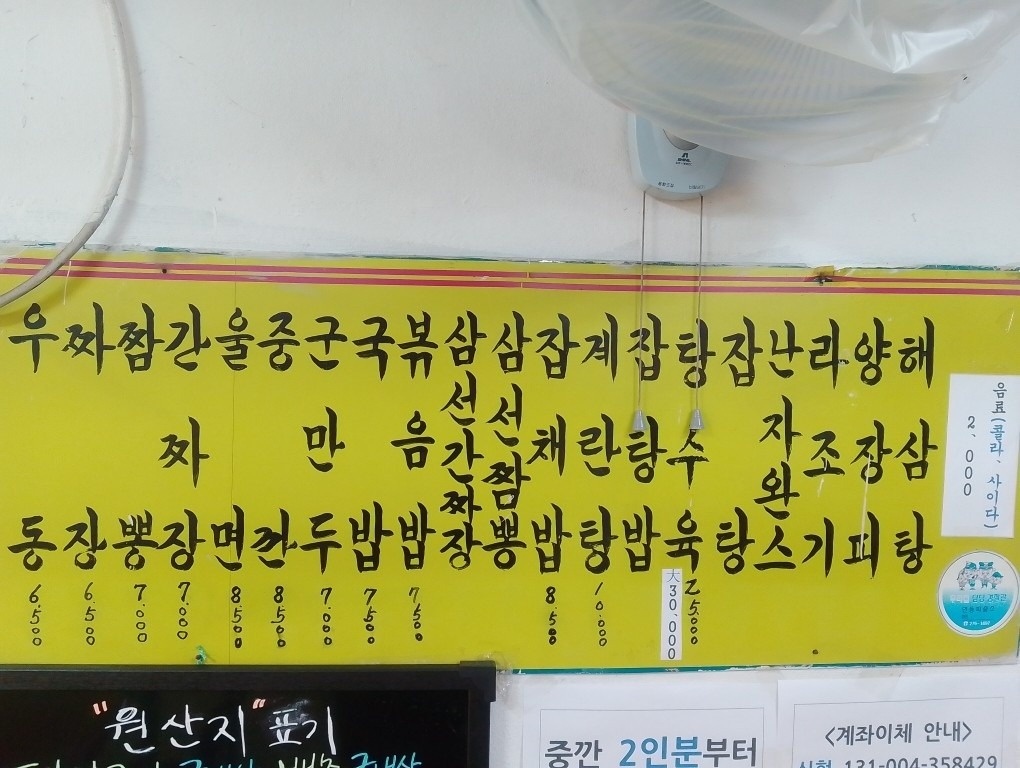 우동 6.500
짜장 6.500
짬뽕 7.000
간짜장 7.000
울면 8500
중깐 8500
군만두 7.000
국밥 7500
볶음밥 7,500
삼선간짜장
삼선짬뽕
잡채밥 8.500
계란탕 10.000
잡탕밥
탕수육 大30,000 25000
잡탕
난자완스
라조기
양장피
해삼탕
음료(콜라、사이다)
2、000
"원산지" 표기
중깐 2인분부터
<계좌이체 안내>
신협 131-004-358429